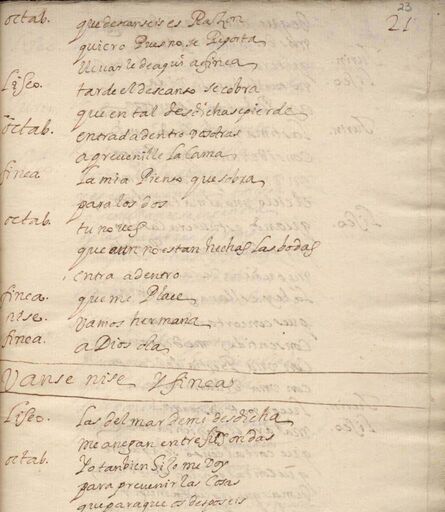 23
21
octab. que descanseis es Razon
quiero Pues no se Reporta
llevar le de aqui a finea
Liseo. tarde el descanso se cobra
que en tal desdicha se pierde
octab. entrad adentro vosotras
a
La Cama
finea La mia Pienso que sobra
para los dos
octab. tu no ves
que aun no estan hechas Las bodas
entra adentro
finea. que me Place
nise. vamos hermana
finea. a Dios ola
Vanse nise Y finea
Liseo. Las del mar de mi desdicha
me anegan entre sus ondas
octab. Yo tanbien hijo me voy
para prevenir las Cosas
que para que os desposeis